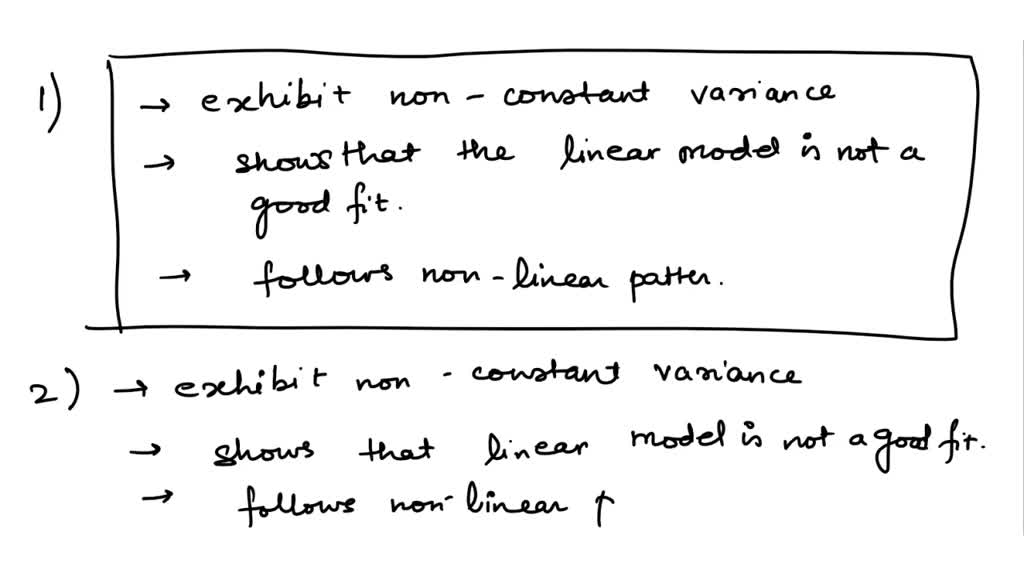 1) → exhibit non - constant variance
→ shows that the linear model is not a
good fit.
→ follows non-linear patter.
2) → exhibit non - constant variance
→ shows that linear model is not a good fit.
→ follows non-linear